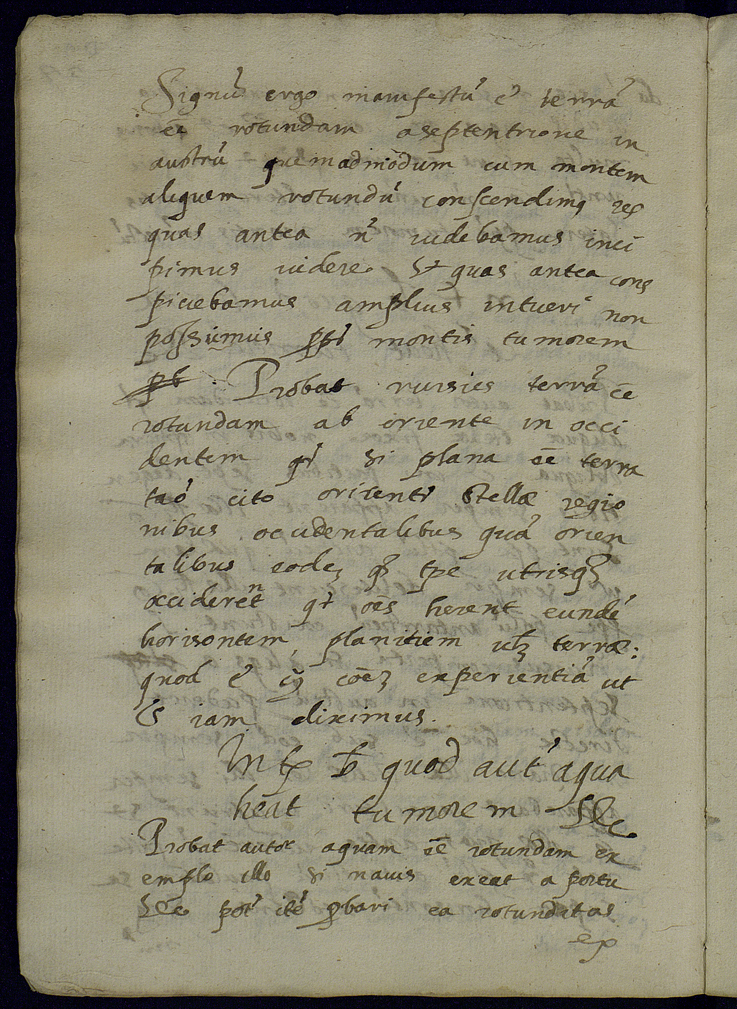 Signũ ergo manifestũ ẽ terrã
eē rotundam a septentrione in
austrũ quemadmodum cum montem
aliquem rotundũ conscendimq res
quas antea nͫ uidebamus inci
pimus uidere. Et quas antea cons
piciebamus amplius intueri non
possumus montis tumorem
Probat rursus terrã eē
rotundam ab oriente in occi
dentem qꝛ si plana eēt terra
tã cito orirentᷣ Stellæ regio
nibus occidentalibus quã orien
talibus eodeȝ qȝ tp̄e utrisqȝ
occiderent qꝛ oēs hērent eundẽ
horisontem, planitiem terræ:
quod ẽ cõeȝ experientiã ut
& iam diximus.
In quod aut aqua
hēat tumorem &c
Probat autor aquam eē rotundam ex
emplo illo si nauis exeat a portu
&c potᷣ itẽ ꝓbari ea rotunditas
ex